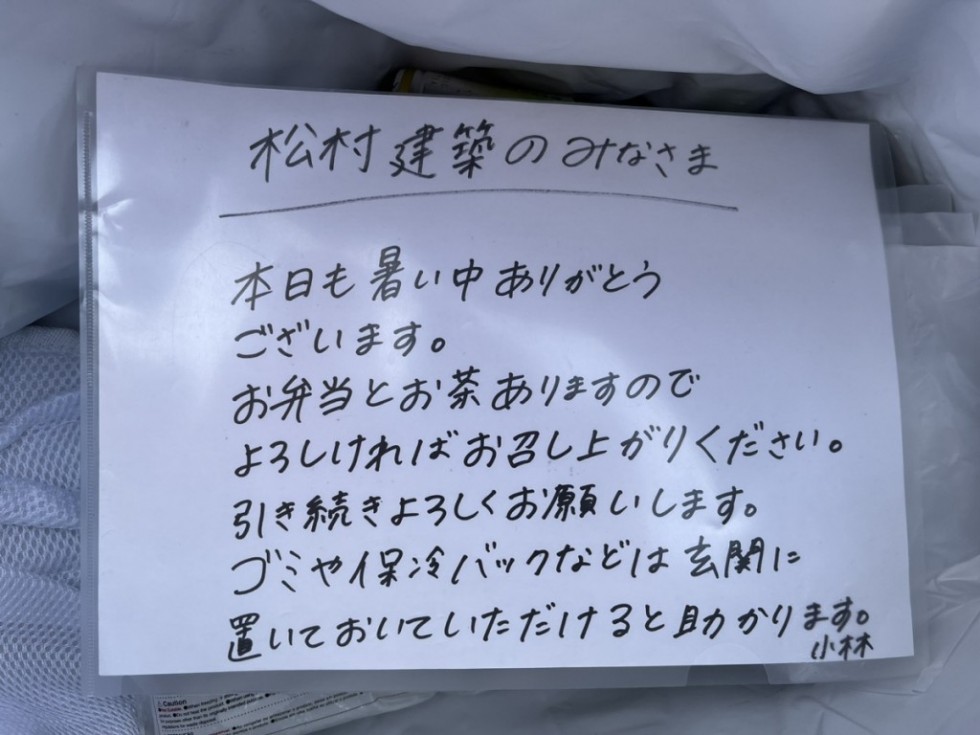 松村建築のみなさま
本日も暑い中ありがとう
ございます。
お弁当とお茶ありますので
よろしければお召し上がりください。
引き続きよろしくお願いします。
ゴミや保冷バックなどは玄関に
置いておいていただけると助かります。
小林
Caution